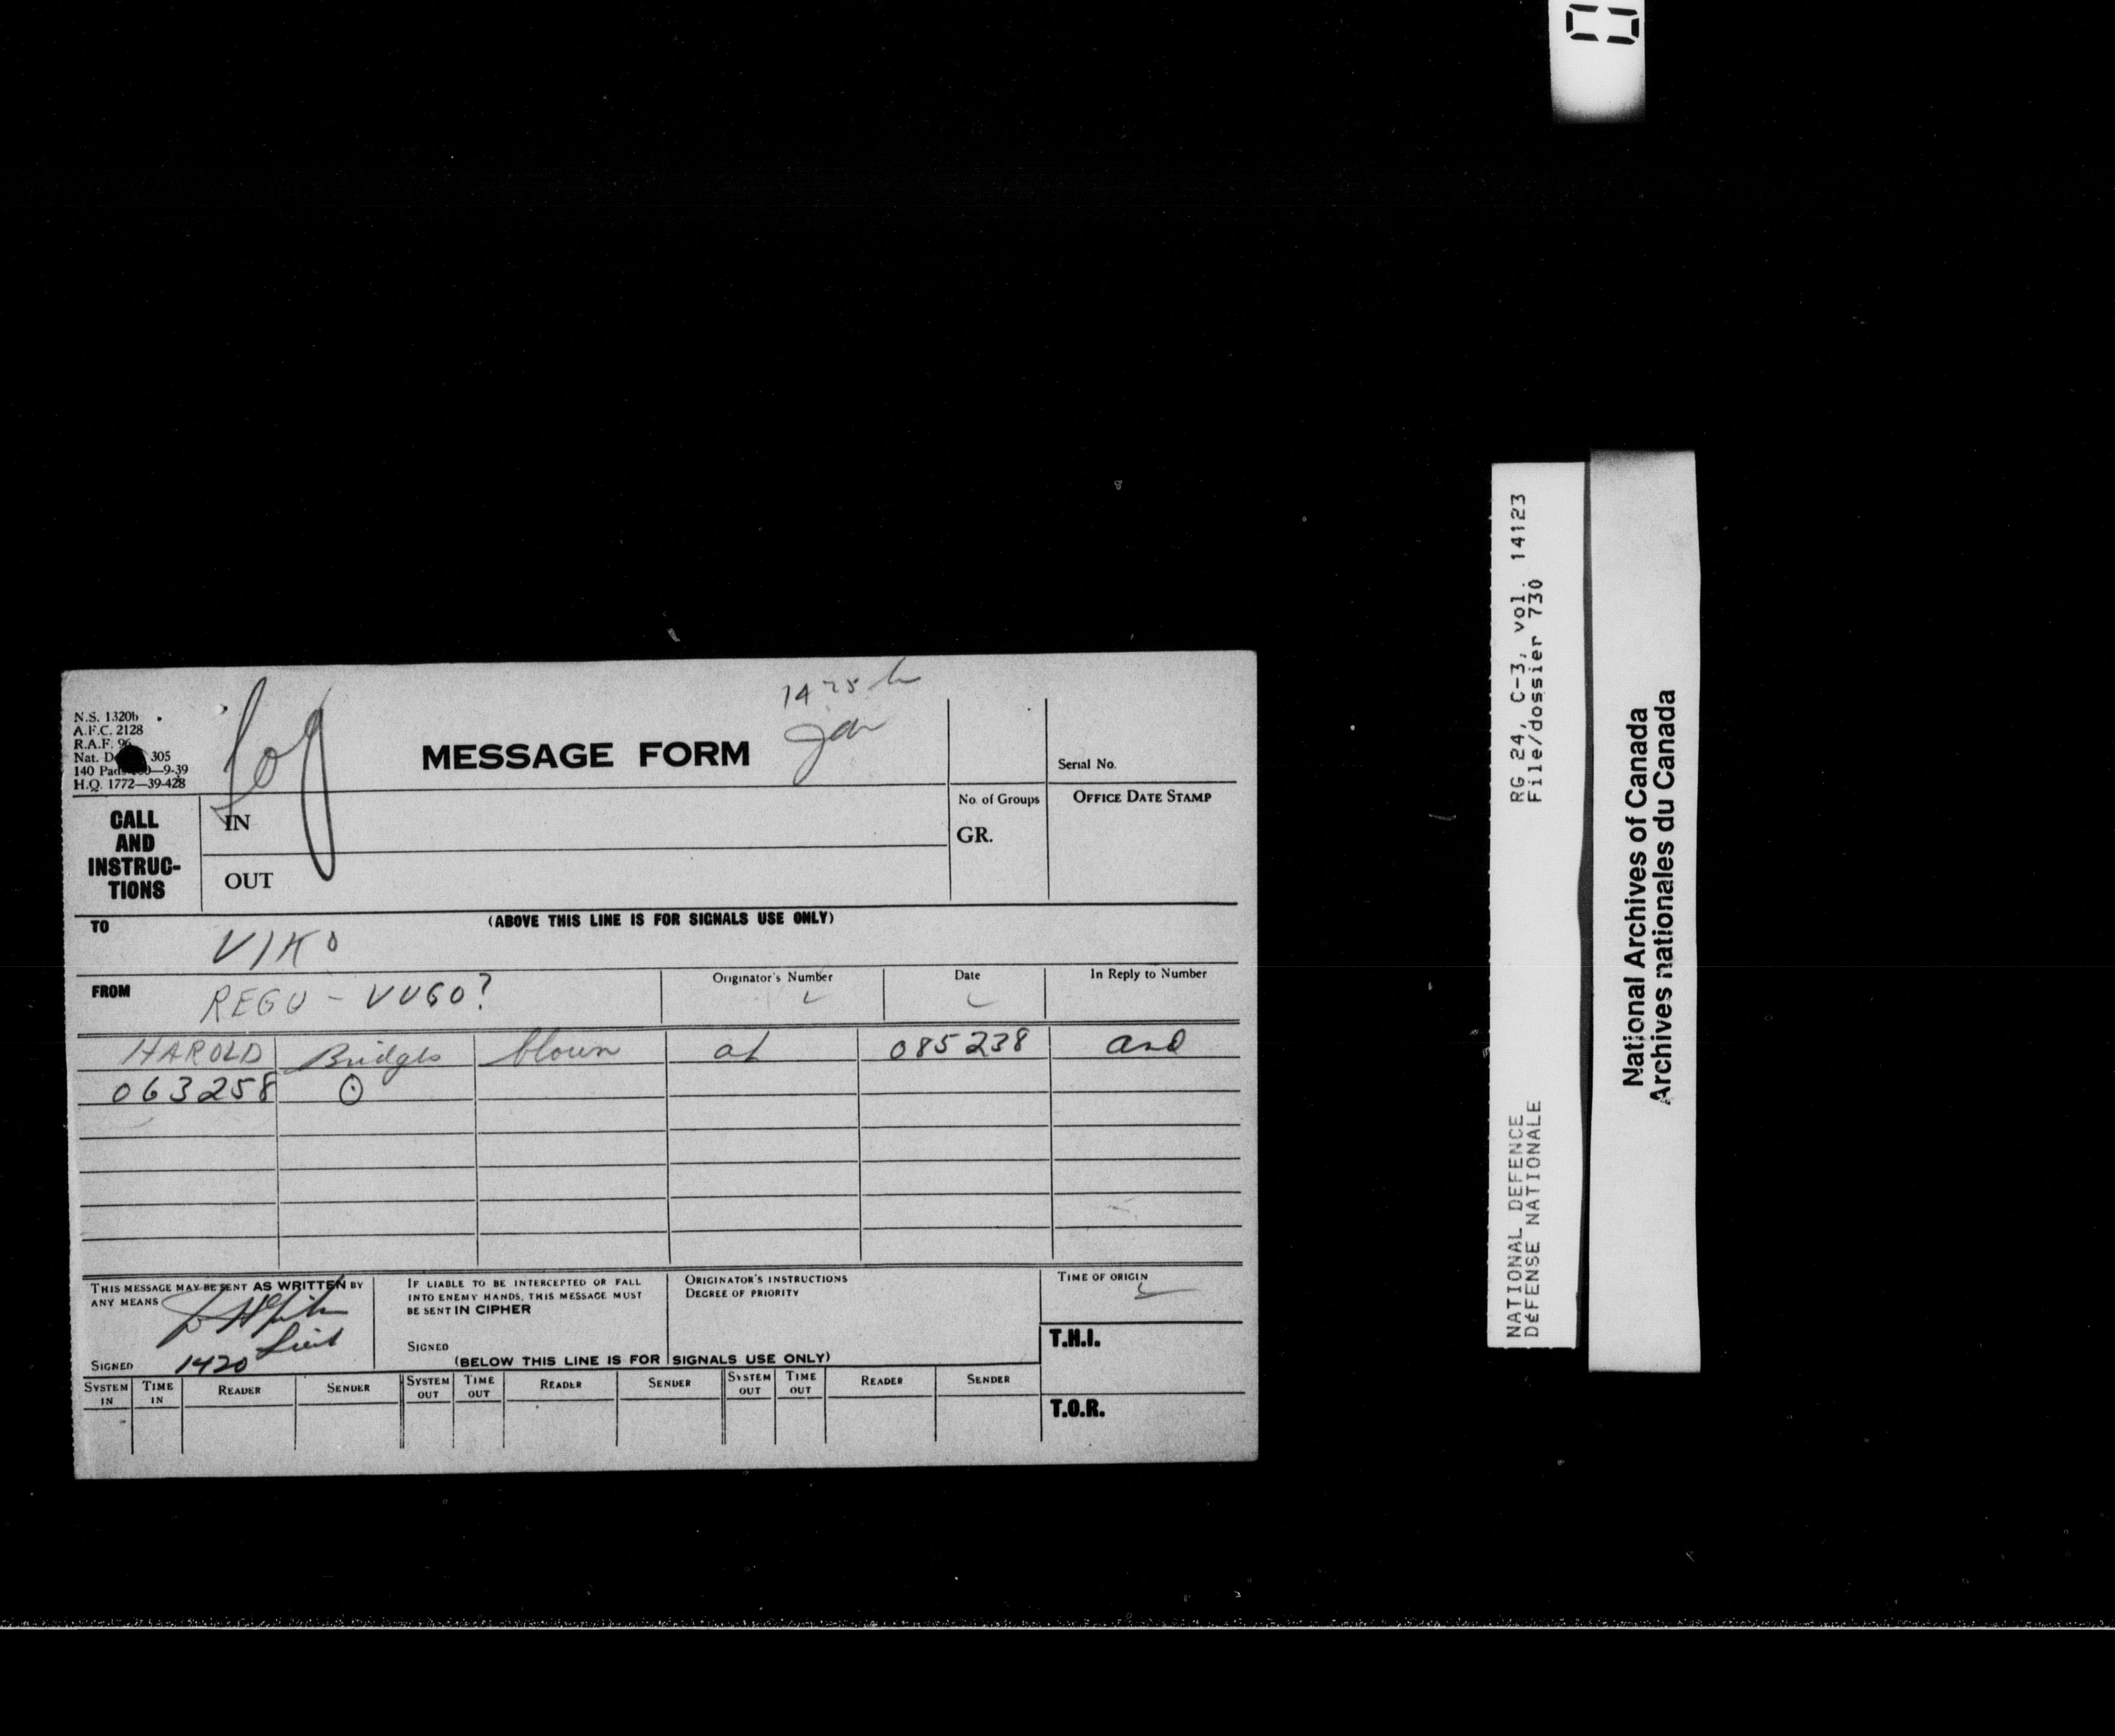 N.S. 1320b
A.F.C. 2128
R.A.F. 96
Nat. D 305
140 Pads 9-39
H.Q. 1772—39-428
Log
MESSAGE FORM
1425 h
Serial No.
CALL AND INSTRUC-TIONS
IN
OUT
No. of Groups
GR.
OFFICE DATE STAMP
(ABOVE THIS LINE IS FOR SIGNALS USE ONLY)
TO
VIKO
FROM
REGU - VUGO?
Originator's Number
Date
In Reply to Number
HAROLD Bridges blown at 085238 and
063258 ⊙
THIS MESSAGE MAY BE SENT AS WRITTEN BY
ANY MEANS
Lieut
SIGNED 1420
IF LIABLE TO BE INTERCEPTED OR FALL
INTO ENEMY HANDS, THIS MESSAGE MUST
BE SENT IN CIPHER
SIGNED
ORIGINATOR'S INSTRUCTIONS
DEGREE OF PRIORITY
TIME OF ORIGIN
T.H.I.
(BELOW THIS LINE IS FOR SIGNALS USE ONLY)
SYSTEM IN TIME IN READER SENDER SYSTEM OUT TIME OUT READER SENDER SYSTEM OUT TIME OUT READER SENDER
T.O.R.
RG 24, C-3, vol. 14123
File/dossier 730
NATIONAL DEFENCE
DéFENSE NATIONALE
National Archives of Canada
Archives nationales du Canada